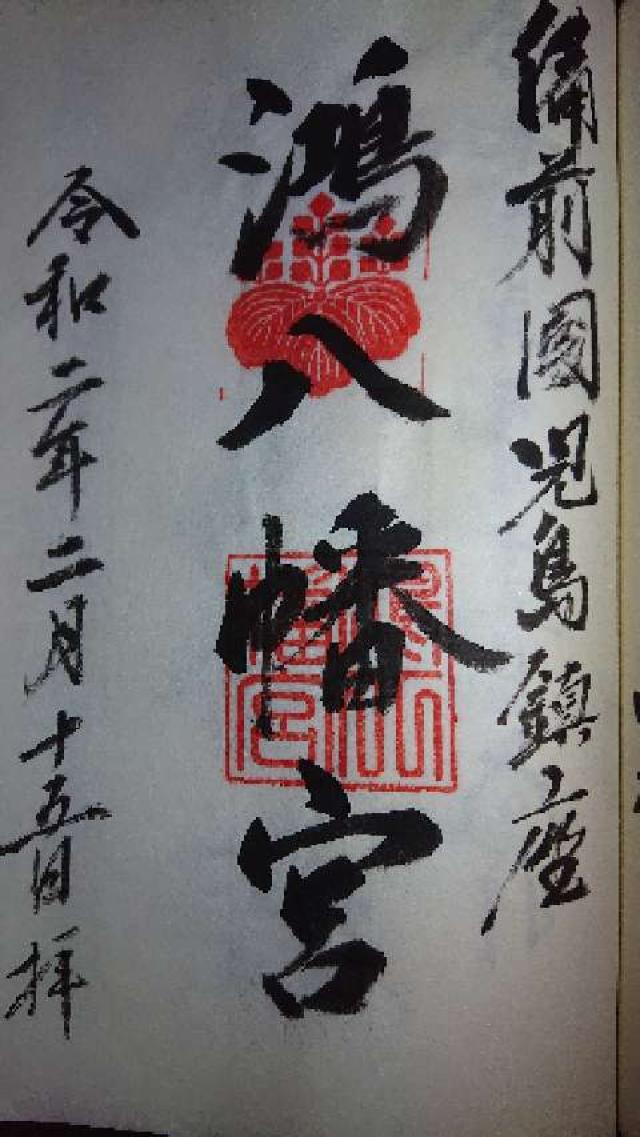 備前國児島鎮座
鴻八幡宮
令和二年二月十五日拝